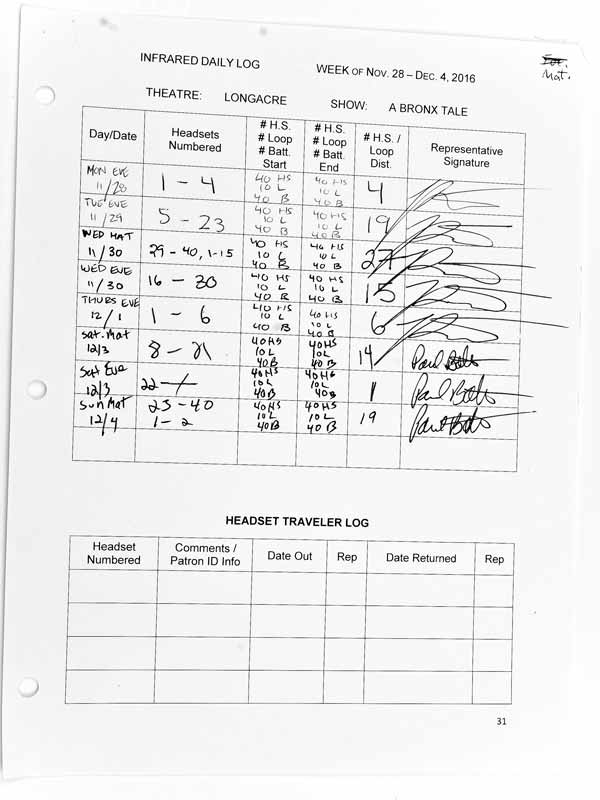 INFRARED DAILY LOG
WEEK OF NOV. 28 – DEC. 4, 2016
Mat.
THEATRE: LONGACRE SHOW: A BRONX TALE
Day/Date
Headsets
Numbered
# H.S.
# Loop
# Batt.
Start
# H.S.
# Loop
# Batt.
End
# H.S. /
Loop
Dist.
Representative
Signature
MON EVE
11/28
1 – 4
40 HS
10 L
40 B
40 HS
10 L
40 B
4
TUE EVE
11/29
5 – 23
40 HS
10 L
40 B
40 HS
10 L
40 B
19
WED MAT
11/30
29 – 40, 1-15
40 HS
10 L
40 B
40 HS
10 L
40 B
27
WED EVE
11/30
16 – 30
40 HS
10 L
40 B
40 HS
10 L
40 B
15
THURS EVE
12/1
1 – 6
40 HS
10 L
40 B
40 HS
10 L
40 B
6
Sat. Mat
12/3
8 – 21
40HS
10L
40B
40HS
10L
40B
14
Sat Eve
12/3
22 –
40HS
10L
40B
40HS
10L
40B
1
Sun Mat
12/4
23 – 40
1 – 2
40HS
10L
40B
40HS
10L
40B
19
HEADSET TRAVELER LOG
Headset
Numbered
Comments /
Patron ID Info
Date Out
Rep
Date Returned
Rep
31